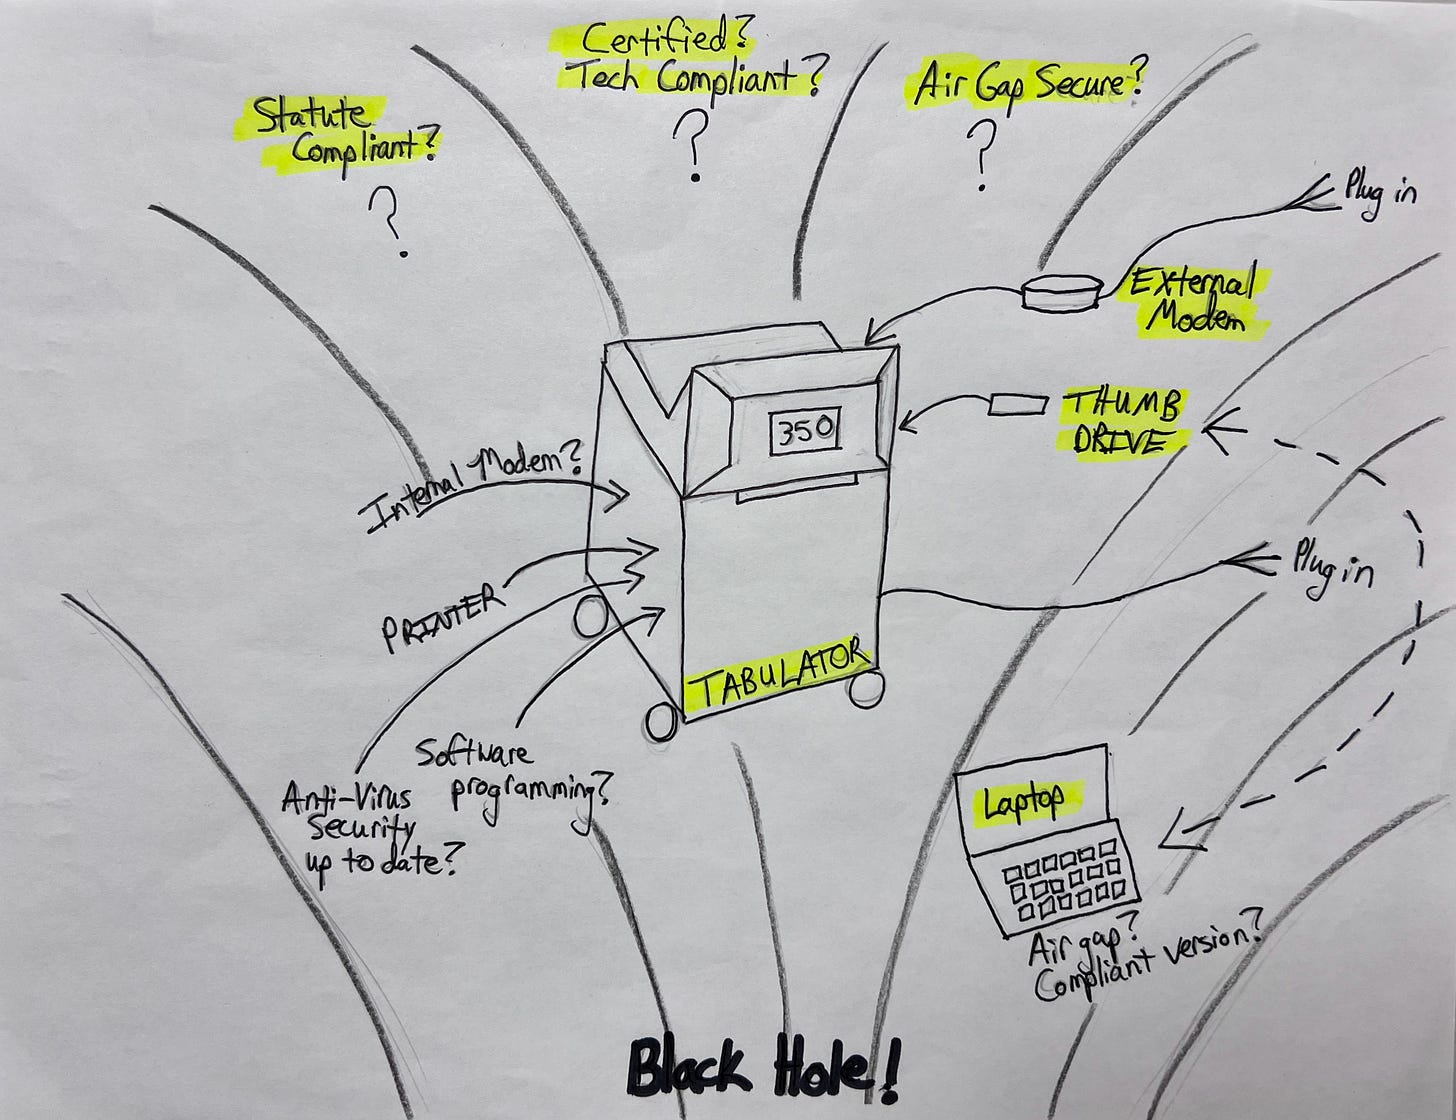 Certified?
Tech Compliant?
?
Statute
Compliant?
?
Air Gap Secure?
?
Plug in
External
Modem
THUMB
DRIVE
350
Internal Modem?
Plug in
PRINTER
TABULATOR
Software
programming?
Anti-Virus
Security
up to date?
Laptop
Air gap?
Compliant version?
Black Hole!